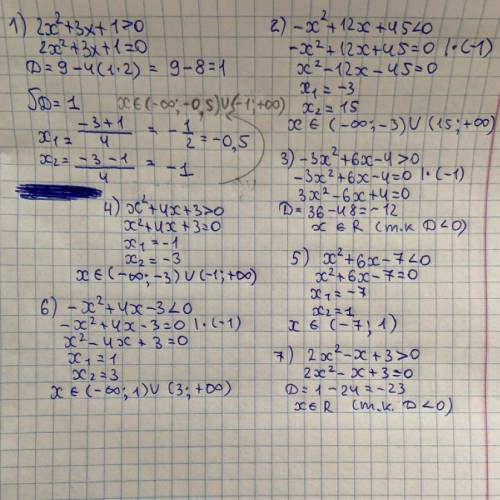 1) 2x²+3x+1>0
2x²+3x+1=0
D=9-4(1·2)=9-8=1
√D=1 x∈(-∞;-0,5)∪(-1;+∞)
x₁=(-3+1)/4=-1/2=-0,5
x₂=(-3-1)/4=-1
2) -x²+12x+45<0
-x²+12x+45=0 |·(-1)
x²-12x-45=0
x₁=-3
x₂=15
x∈(-∞;-3)∪(15;+∞)
3) -3x²+6x-4>0
-3x²+6x-4=0 |·(-1)
3x²-6x+4=0
D=36-48=-12
x∈R (т.к. D<0)
4) x²+4x+3>0
x²+4x+3=0
x₁=-1
x₂=-3
x∈(-∞;-3)∪(-1;+∞)
5) x²+6x-7<0
x²+6x-7=0
x₁=-7
x₂=1
x∈(-7;1)
6) -x²+4x-3<0
-x²+4x-3=0 |·(-1)
x²-4x+3=0
x₁=1
x₂=3
x∈(-∞;1)∪(3;+∞)
7) 2x²-x+3>0
2x²-x+3=0
D=1-24=-23
x∈R (т.к. D<0)